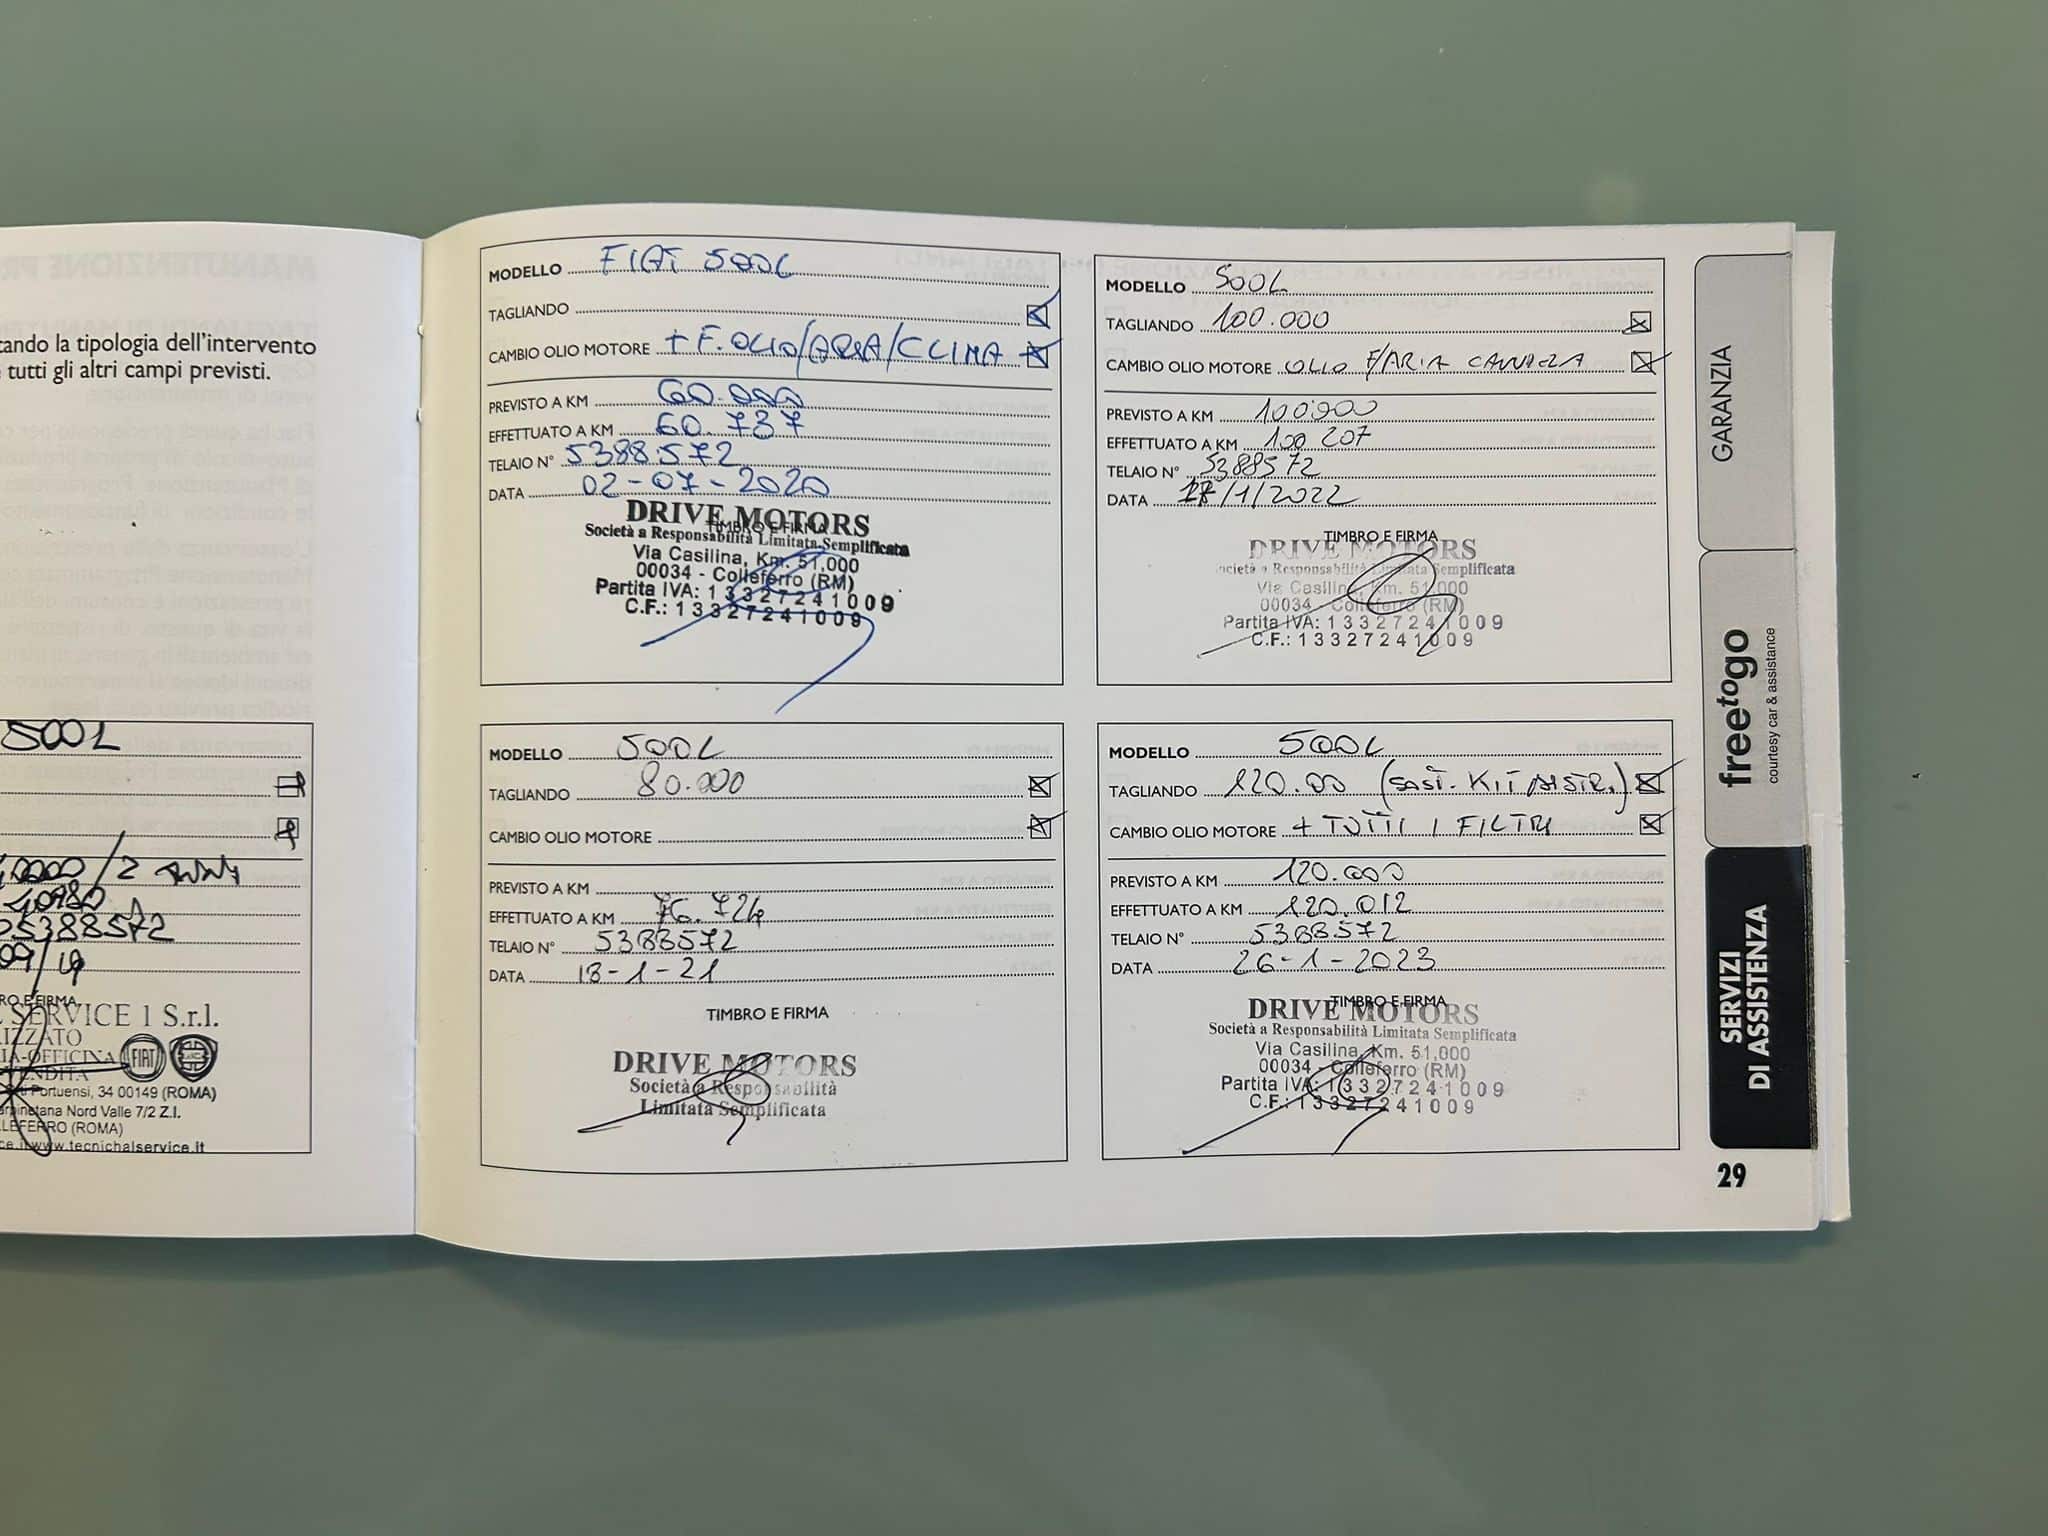 tando la tipologia dell'intervento
tutti gli altri campi previsti.
500L
40000/2 ANNI
05388572
09/19
SERVICE 1 S.r.l.
IZZATO
IA-OFFICINA FIAT
VENDITA
Portuensi, 34 00149 (ROMA)
arpinetana Nord Valle 7/2 Z.I.
LLEFERRO (ROMA)
www.tecnichalservice.it
MODELLO FIAT 500L
TAGLIANDO
CAMBIO OLIO MOTORE + F. OLIO/ARIA/CLIMA
PREVISTO A KM 60.000
EFFETTUATO A KM 60.737
TELAIO N° 5388572
DATA 02-07-2020
TIMBRO E FIRMA
DRIVE MOTORS
Società a Responsabilità Limitata Semplificata
Via Casilina, Km. 51,000
00034 - Colleferro (RM)
Partita IVA: 13327241009
C.F.: 13327241009
MODELLO 500L
TAGLIANDO 80.000
CAMBIO OLIO MOTORE
PREVISTO A KM
EFFETTUATO A KM 76.724
TELAIO N° 5388572
DATA 18-1-21
TIMBRO E FIRMA
DRIVE MOTORS
Società a Responsabilità
Limitata Semplificata
MODELLO 500L
TAGLIANDO 100.000
CAMBIO OLIO MOTORE OLIO F/ARIA
PREVISTO A KM 100000
EFFETTUATO A KM 100 207
TELAIO N° 5388572
DATA 17/1/2022
TIMBRO E FIRMA
DRIVE MOTORS
Società a Responsabilità Limitata Semplificata
Via Casilina, Km. 51,000
00034 - Colleferro (RM)
Partita IVA: 13327241009
C.F.: 13327241009
MODELLO 500L
TAGLIANDO 120.00 (SOST. KIT DISTR.)
CAMBIO OLIO MOTORE + TUTTI I FILTRI
PREVISTO A KM 120.000
EFFETTUATO A KM 120.012
TELAIO N° 5388572
DATA 26-1-2023
TIMBRO E FIRMA
DRIVE MOTORS
Società a Responsabilità Limitata Semplificata
Via Casilina, Km. 51,000
00034 - Colleferro (RM)
Partita IVA: 13327241009
C.F.: 13327241009
GARANZIA
freetogo
courtesy car & assistance
SERVIZI
DI ASSISTENZA
29